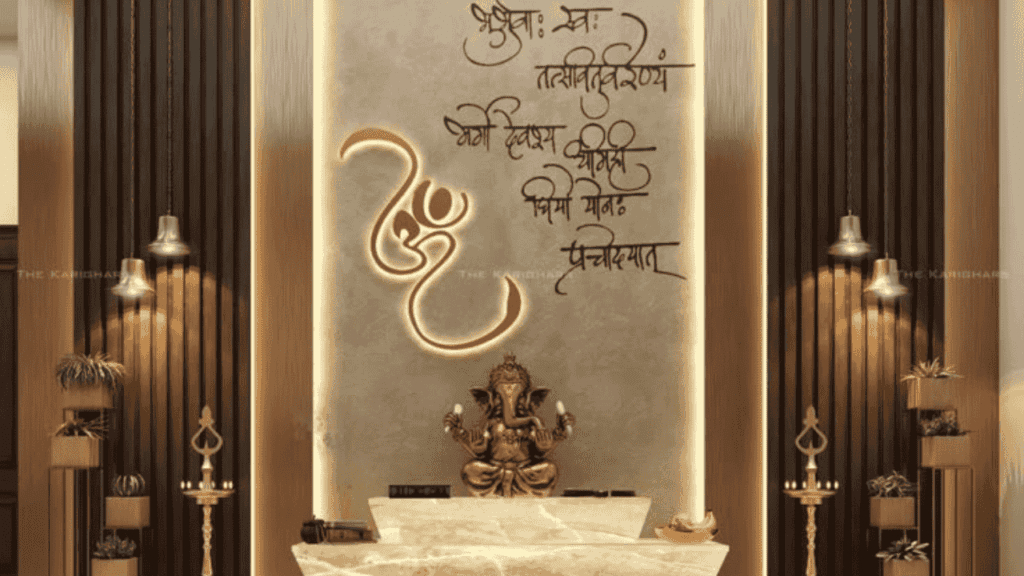 स्वः
तत्सवितुर्वरेण्यं
भर्गो देवस्य
धीमही
धियो योनः
प्रचोदयात्
THE KARIGHARS
THE KARIGHARS